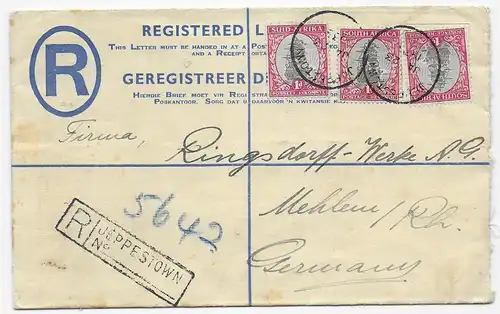 REGISTERED L
THIS LETTER MUST BE HANDED IN AT A
AND A RECEIPT
R
GEREGISTREER
HIERDIE BRIEF MOET VIR
POSKANTOOR. SORG DAT U DAARVOOR 'N KWITANSIE
SUID-AFRIKA
POSSEËL INKOMSTE
1D
SOUTH AFRICA
POSTAGE
Firma, Ringsdorff-Werke A.G.
5642
Mehlem/Rh.
Germany
R
JEPPESTOWN
No